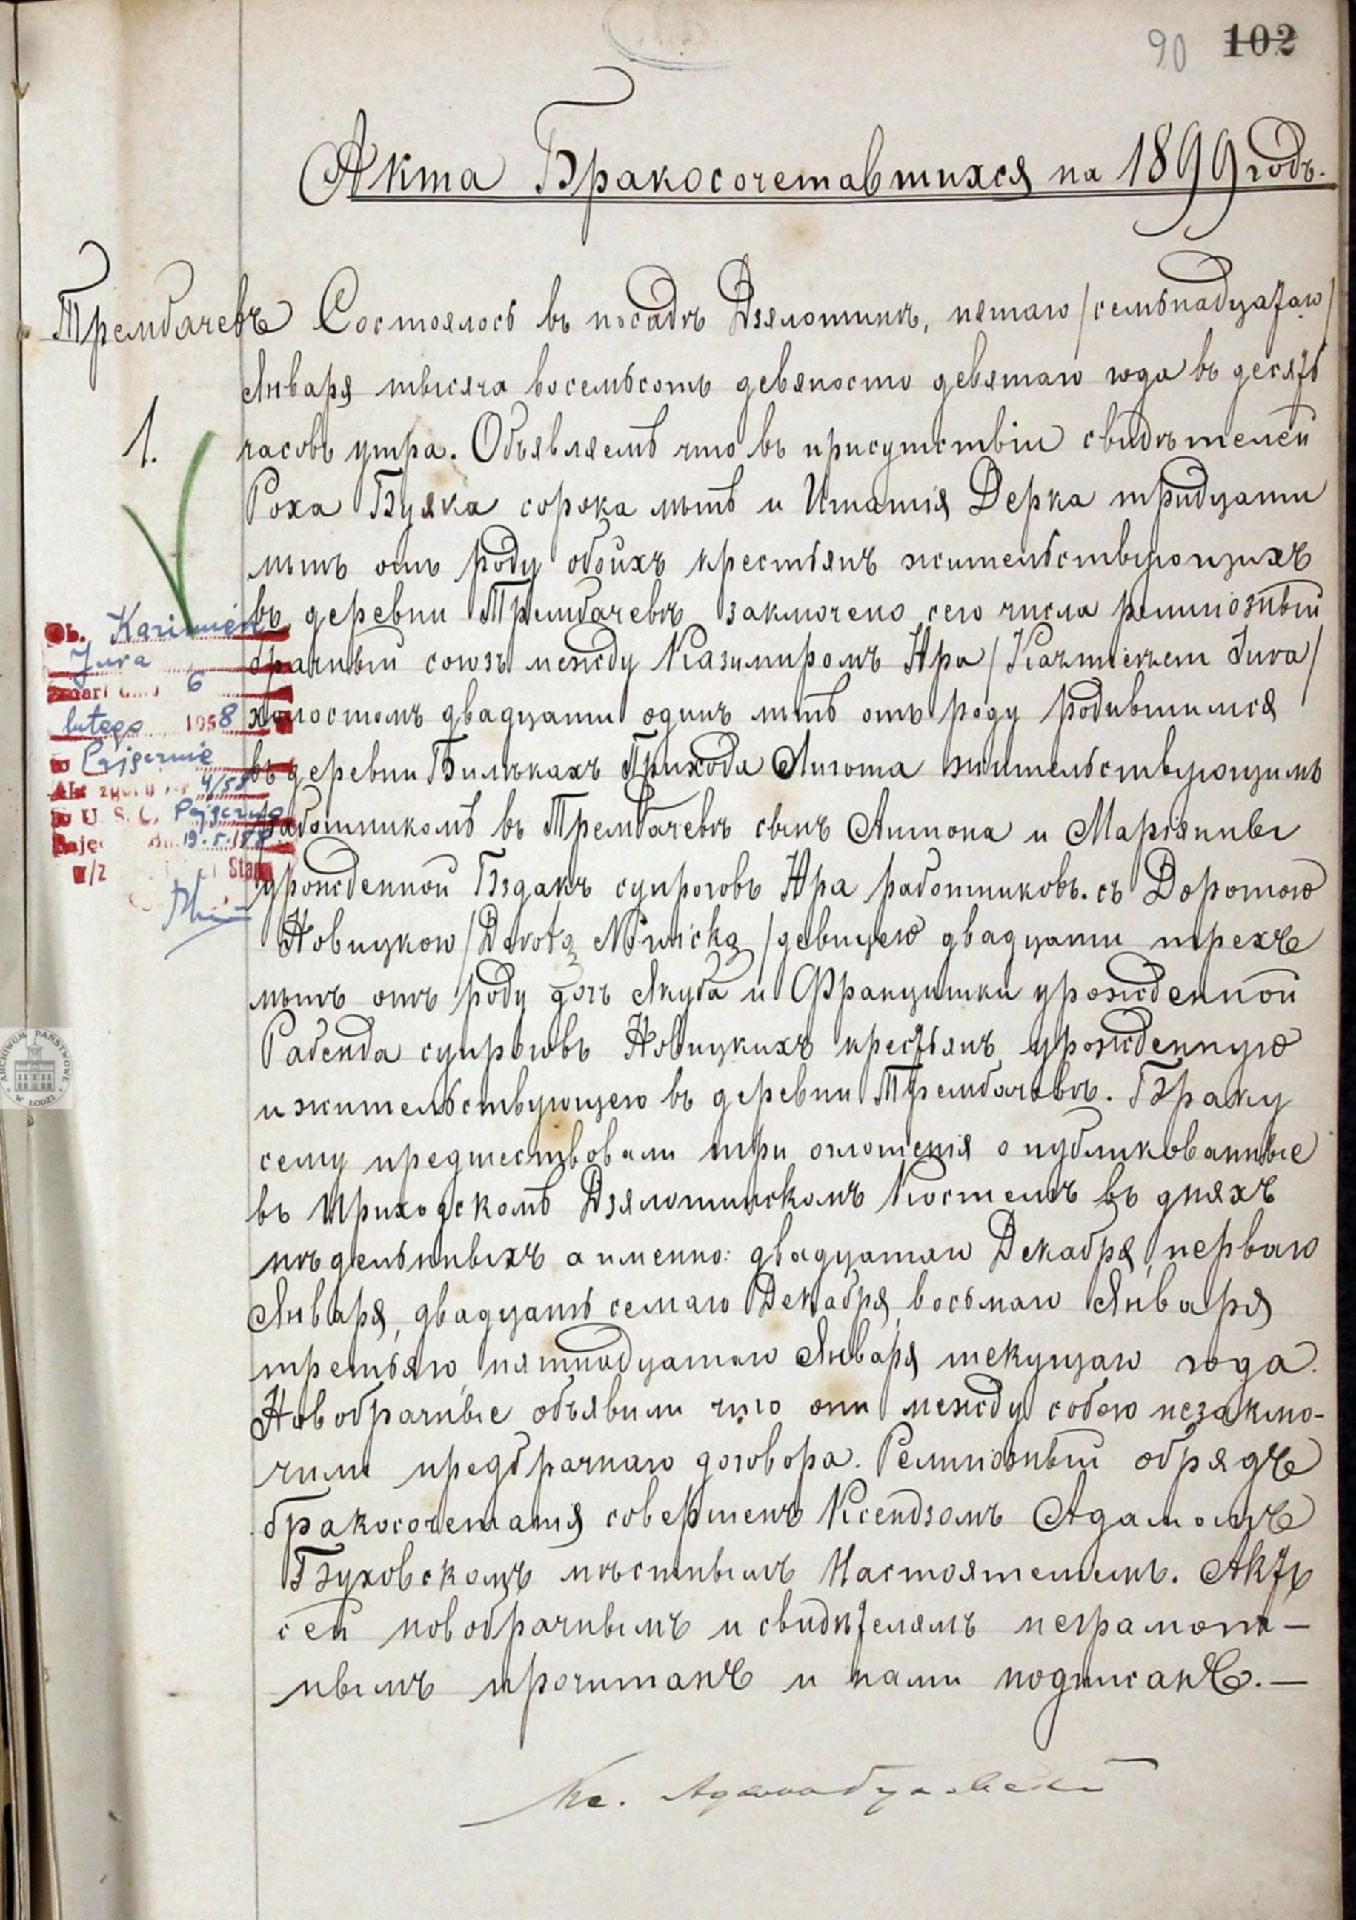 90 102
Акта Бракосочетавшихся на 1899 годъ.
Трембачевъ
1.
Состоялось въ посадѣ Дзялошинѣ, пятаго /семьнадцатаго/
Января тысяча восемьсотъ девяносто девятаго года въ десять
часовъ утра. Объявляемъ что въ присутствіи свидѣтелей
Роха Буяка сорока лѣтъ и Игнатія Дерка тридцати
лѣтъ отъ роду обоихъ крестьянъ жительствующихъ
въ деревни Трембачевѣ заключено сего числа религіозный
брачный союзъ между Казимиромъ Юра /Kaźmierzem Jura/
холостомъ двадцати одинъ лѣтъ отъ роду родившимся
въ деревни Билькахъ Прихода Лигота жительствующимъ
работникомъ въ Трембачевѣ сынъ Антона и Маріянны
урожденной Бздакъ супроговъ Юра работниковъ. съ Доротою
Новицкою /Dorotą Nowicką/ девицею двадцати трехъ
лѣтъ отъ роду дочь Якуба и Францишки урожденной
Рабенда супроговъ Новицкихъ крестьянъ урожденную
и жительствующею въ деревни Трембачевѣ. Браку
сему предшествовали три оглошенія опубликованные
въ Приходскомъ Дзялошинскомъ Костелѣ въ дняхъ
недѣльныхъ а именно: двадцатаго Декабря, перваго
Января, двадцать семаго Декабря, восьмаго Января
третьяго, пятнадцатаго Января текущаго года.
Новобрачные объявили что они между собою незаклю-
чили предбрачнаго договора. Религіозный обрядъ
бракосочетанія совершенъ Ксендзомъ Адамомъ
Буховскомъ мѣстнымъ Настоятелемъ. Актъ
сей новобрачнымъ и свидѣтелямъ неграмот-
нымъ прочитанъ и нами подписанъ.—
Кс. Адам
Kazimierz
Jura
6
lutego 1958
Pajęcznie
4/58
U. S. C. Pajęczno
19.5.
ARCHIWUM PAŃSTWOWE W ŁODZI